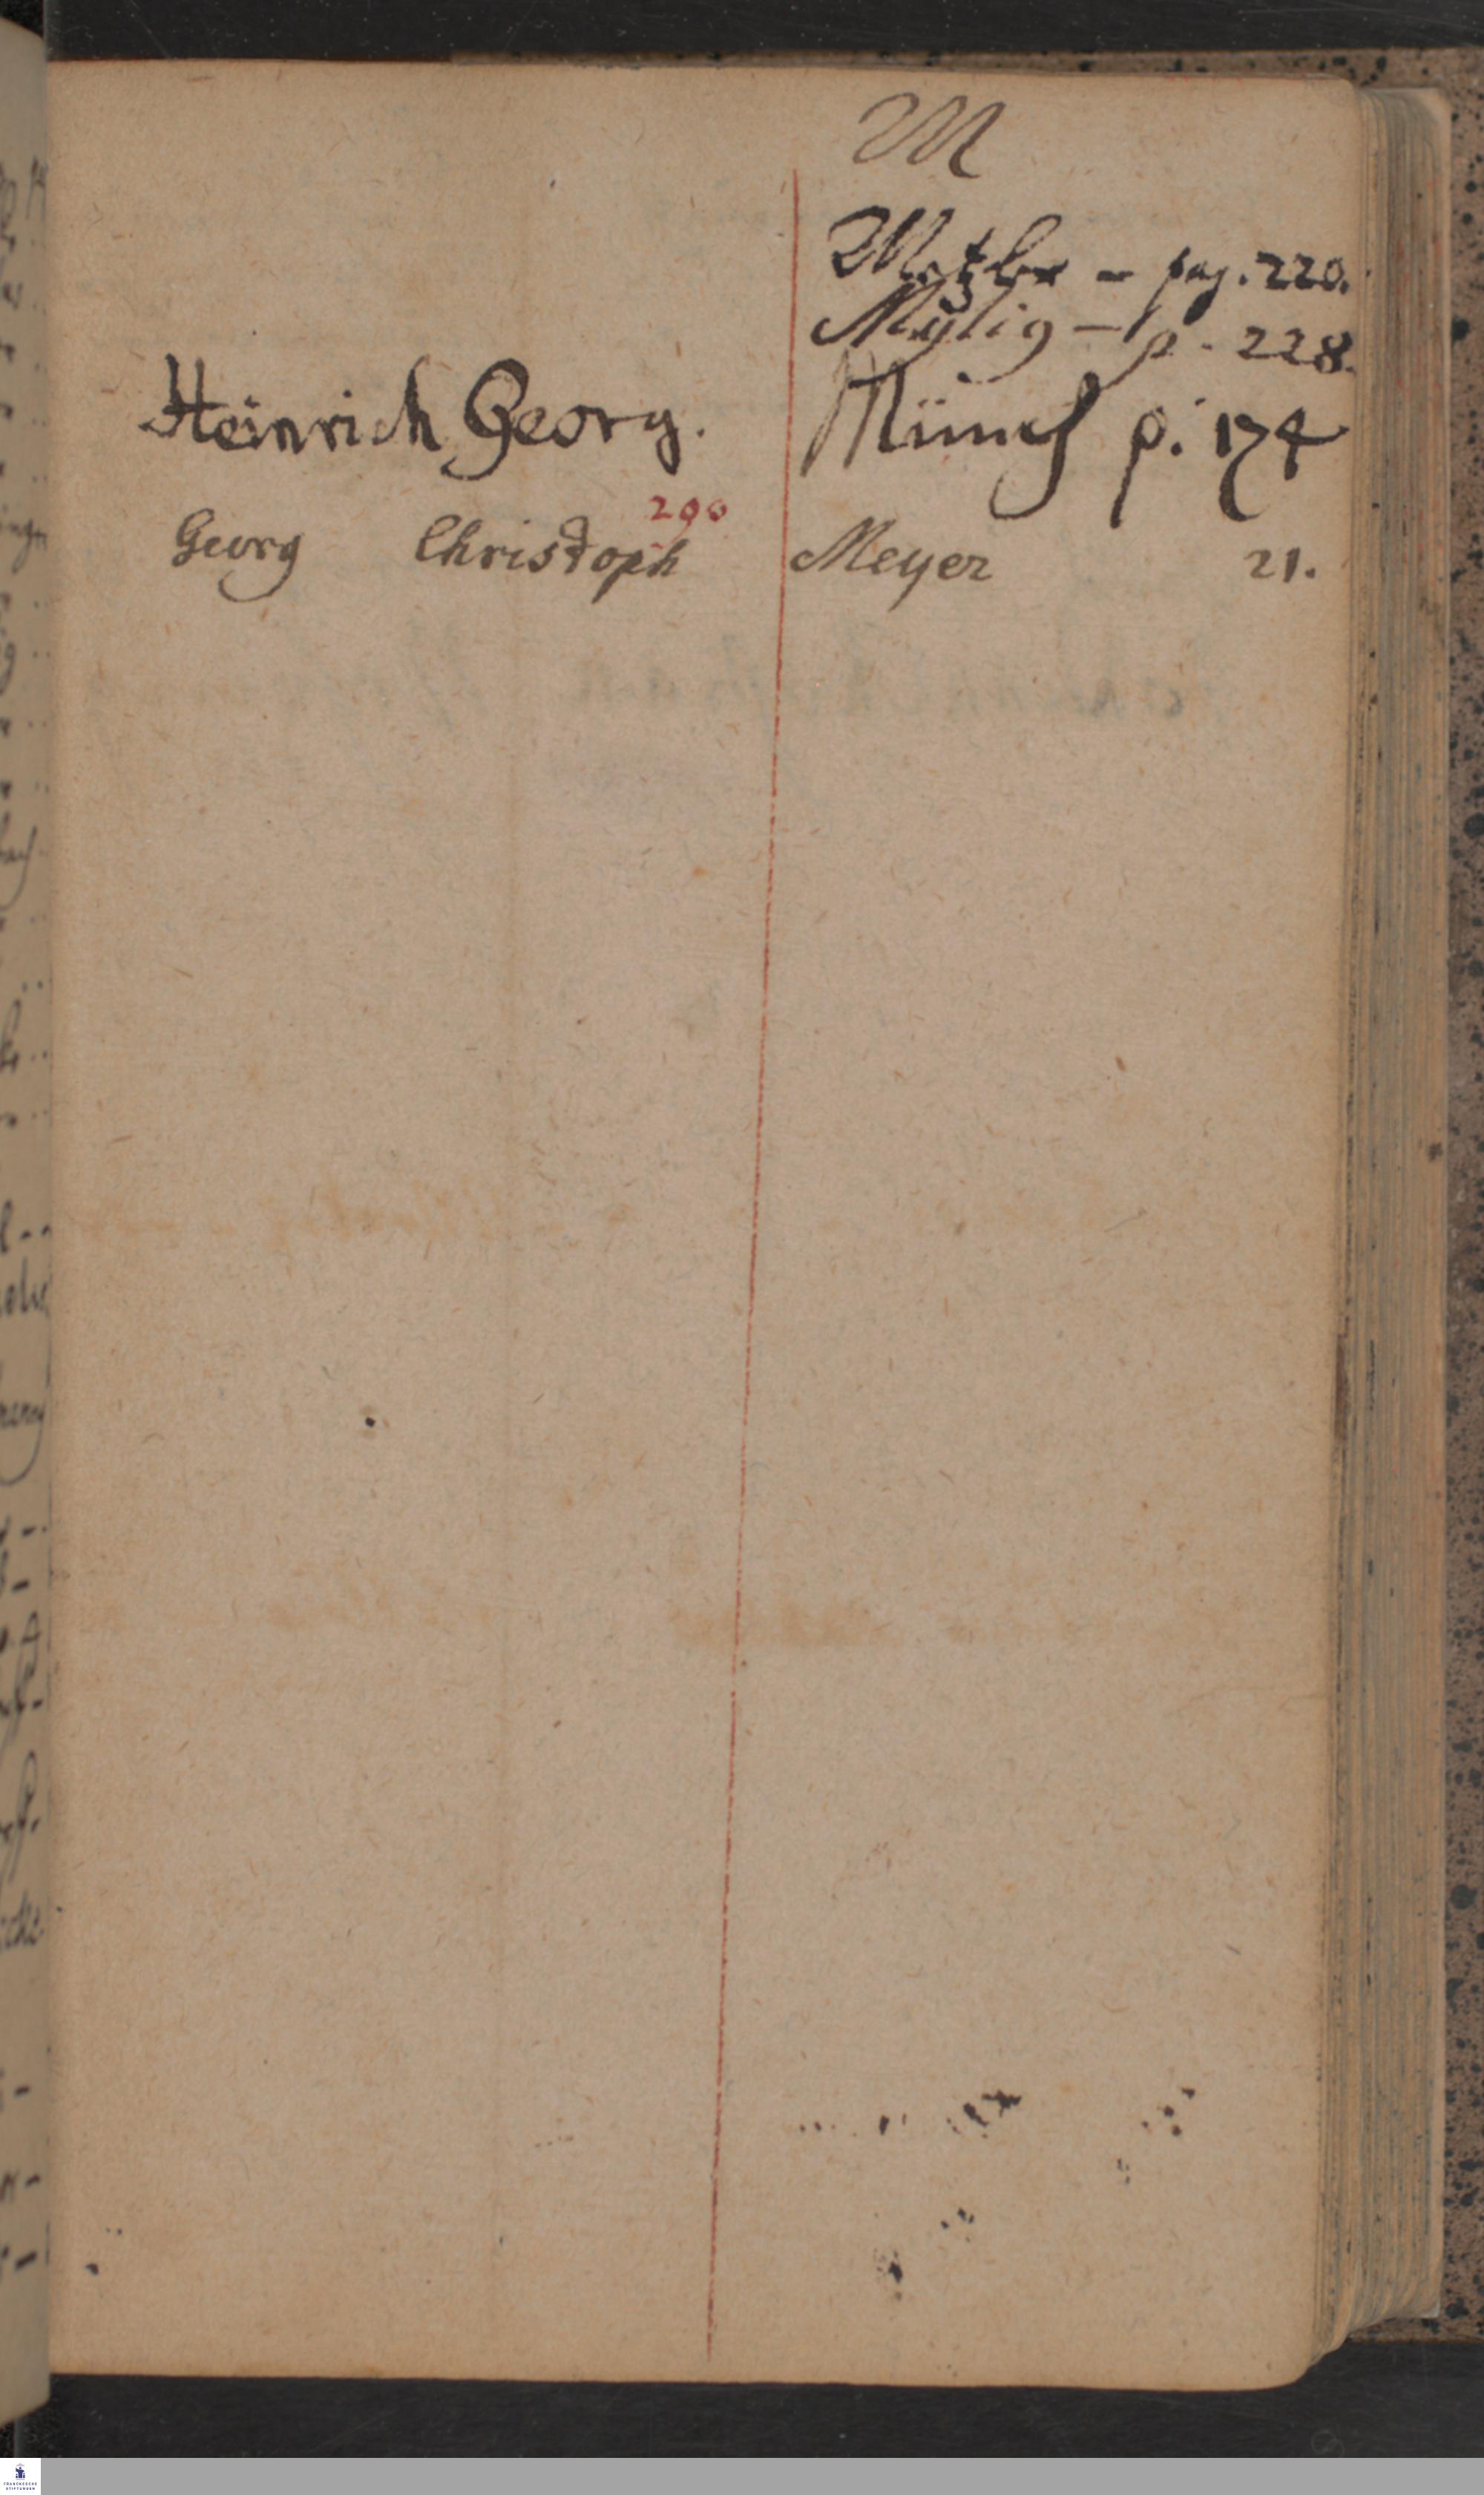 M
Metzler - pag. 220.
Mylig - p. 228.
Heinrich Georg. Münch p. 174
290
Georg Christoph Meyer 21.
FRANCKESCHE
STIFTUNGEN